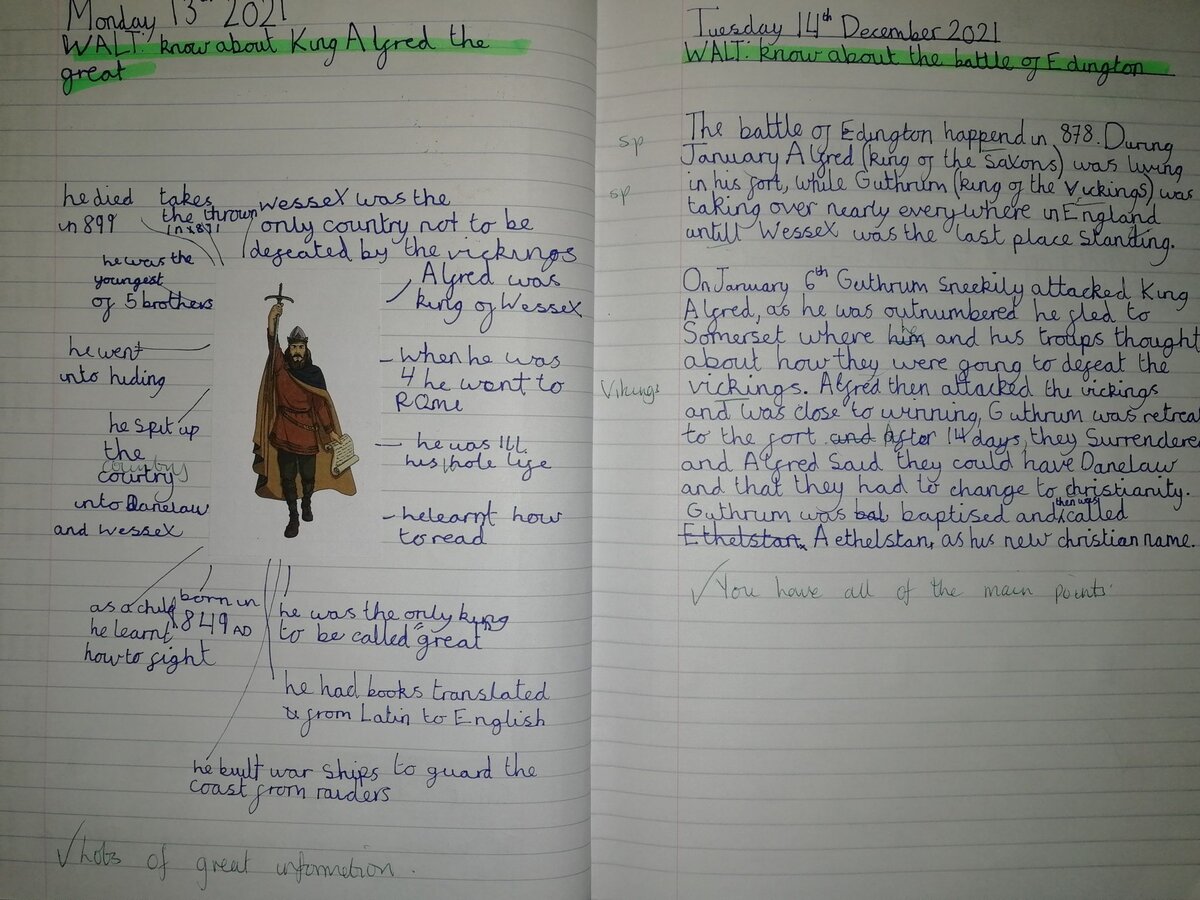 Monday 13th 2021
WALT: know about King Alfred the
great
he died
in 899
takes
the thrown
in 871
Wessex was the
only country not to be
defeated by the vickings
he was the
youngest
of 5 brothers
Alfred was
king of Wessex
he went
into hiding
When he was
4 he want to
Rome
he spit up
the
country
country
into Danelaw
and Wessex
he was Ill
his hole life
he learnt how
to read
as a child
he learnt
how to fight
born in
849 AD
he was the only king
to be called "great
he had books translated
from Latin to English
he built war ships to guard the
coast from raiders
✓ Lots of great information.
Tuesday 14th December 2021
WALT: know about the battle of Edington
sp
The battle of Edington happend in 878. During
January Alfred (king of the Saxons) was living
sp
in his fort, while Guthrum (king of the Vickings) was
taking over nearly everywhere in England
untill Wessex was the last place standing.
On January 6th Guthrum Sneekily attacked King
Alfred, as he was outnumbered he fled to
Somerset where him and his troups thought
about how they were going to defeat the
Vikings
vickings. Alfred then attacked the vickings
and was close to winning, Guthrum was retreat
to the fort and After 14 days, they Surrendere
and Alfred Said they could have Danelaw
and that they had to change to christianity.
Guthrum was bal baptised and then was called
Ethelstan, Aethelstan, as his new christian name.
✓ You have all of the main points.